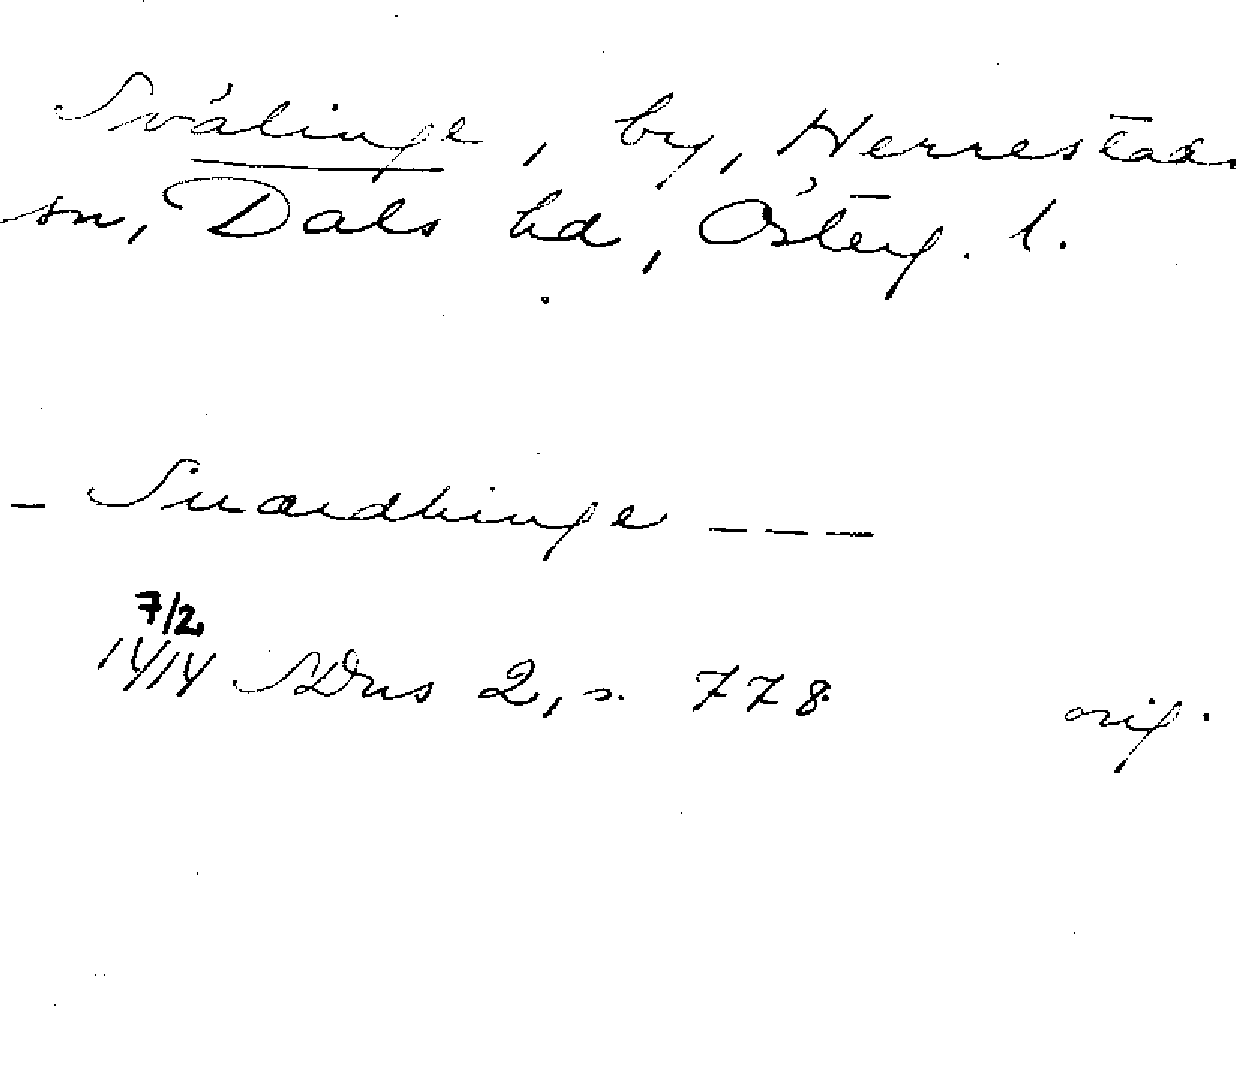 Svälinge, by, Herrestads
sn, Dals hd, Österg. l.
– Suærdhinge – – –
7/2
1414 SDns 2, s. 778 orig.